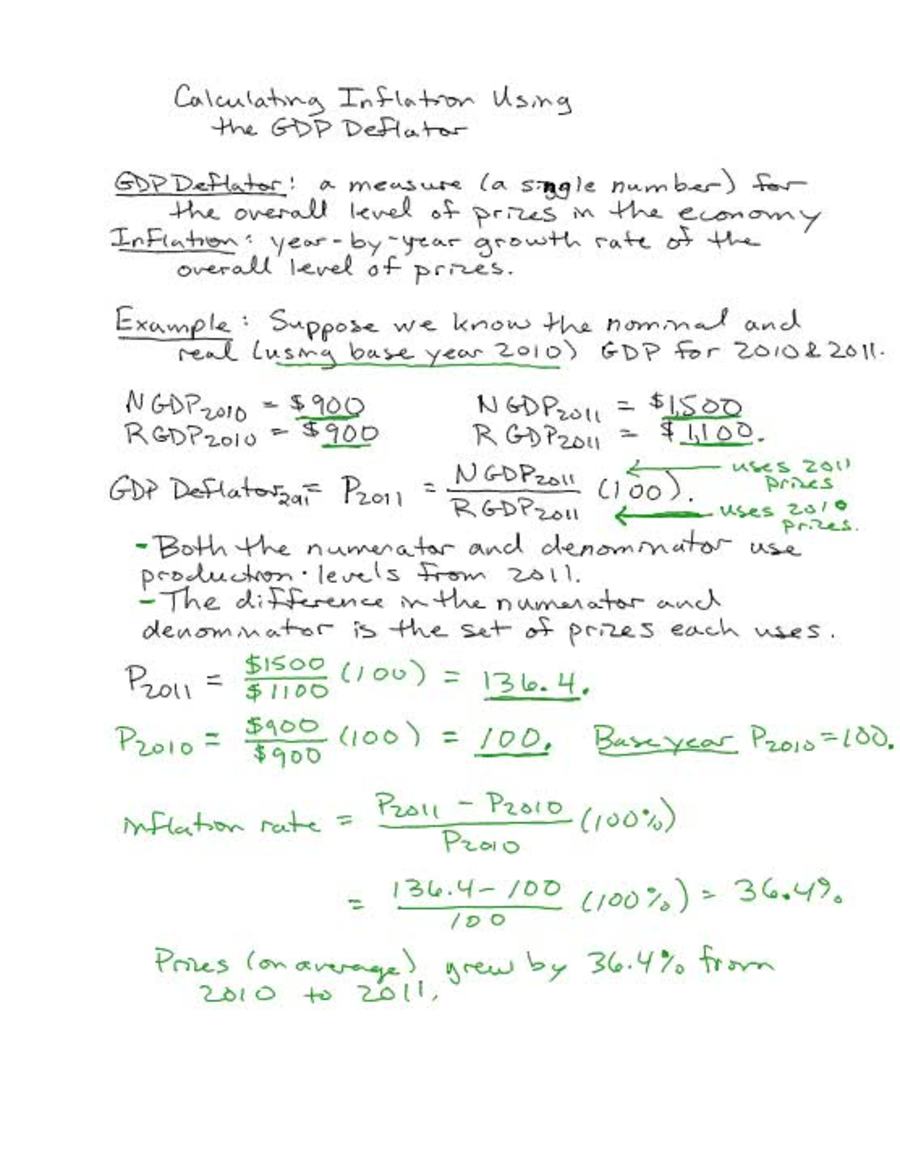 Calculating Inflation Using
the GDP Deflator
GDP Deflator: a measure (a single number) for
the overall level of prizes in the economy
Inflation: year-by-year growth rate of the
overall level of prizes.
Example: Suppose we know the nominal and
real (using base year 2010) GDP for 2010 & 2011.
NGDP2010 = $900 NGDP2011 = $1,500
RGDP2010 = $900 RGDP2011 = $1,100.
GDP Deflator2011 = P2011 = NGDP2011 / RGDP2011 (100). ← uses 2011 prizes
← uses 2010 prizes.
- Both the numerator and denominator use
production levels from 2011.
- The difference in the numerator and
denominator is the set of prizes each uses.
P2011 = $1500 / $1100 (100) = 136.4.
P2010 = $900 / $900 (100) = 100. Base year P2010 = 100.
inflation rate = P2011 - P2010 / P2010 (100%)
= 136.4 - 100 / 100 (100%) = 36.4%
Prizes (on average) grew by 36.4% from
2010 to 2011.